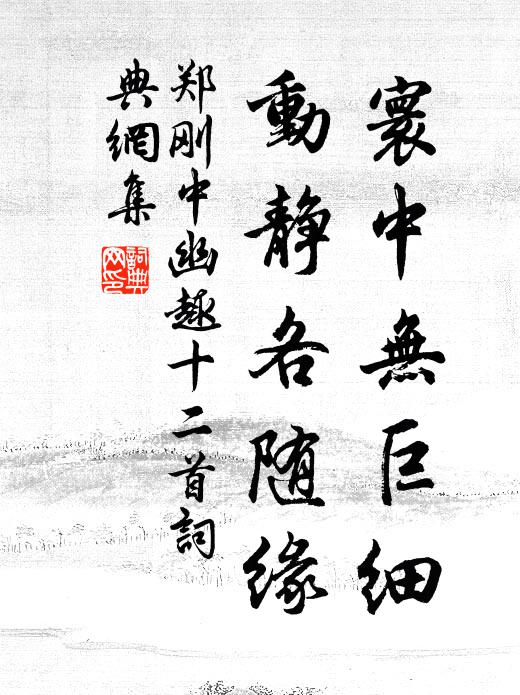 寰中無巨細
動静各随緣
郑刚中幽趣十二首詞
典網集
詞典網印